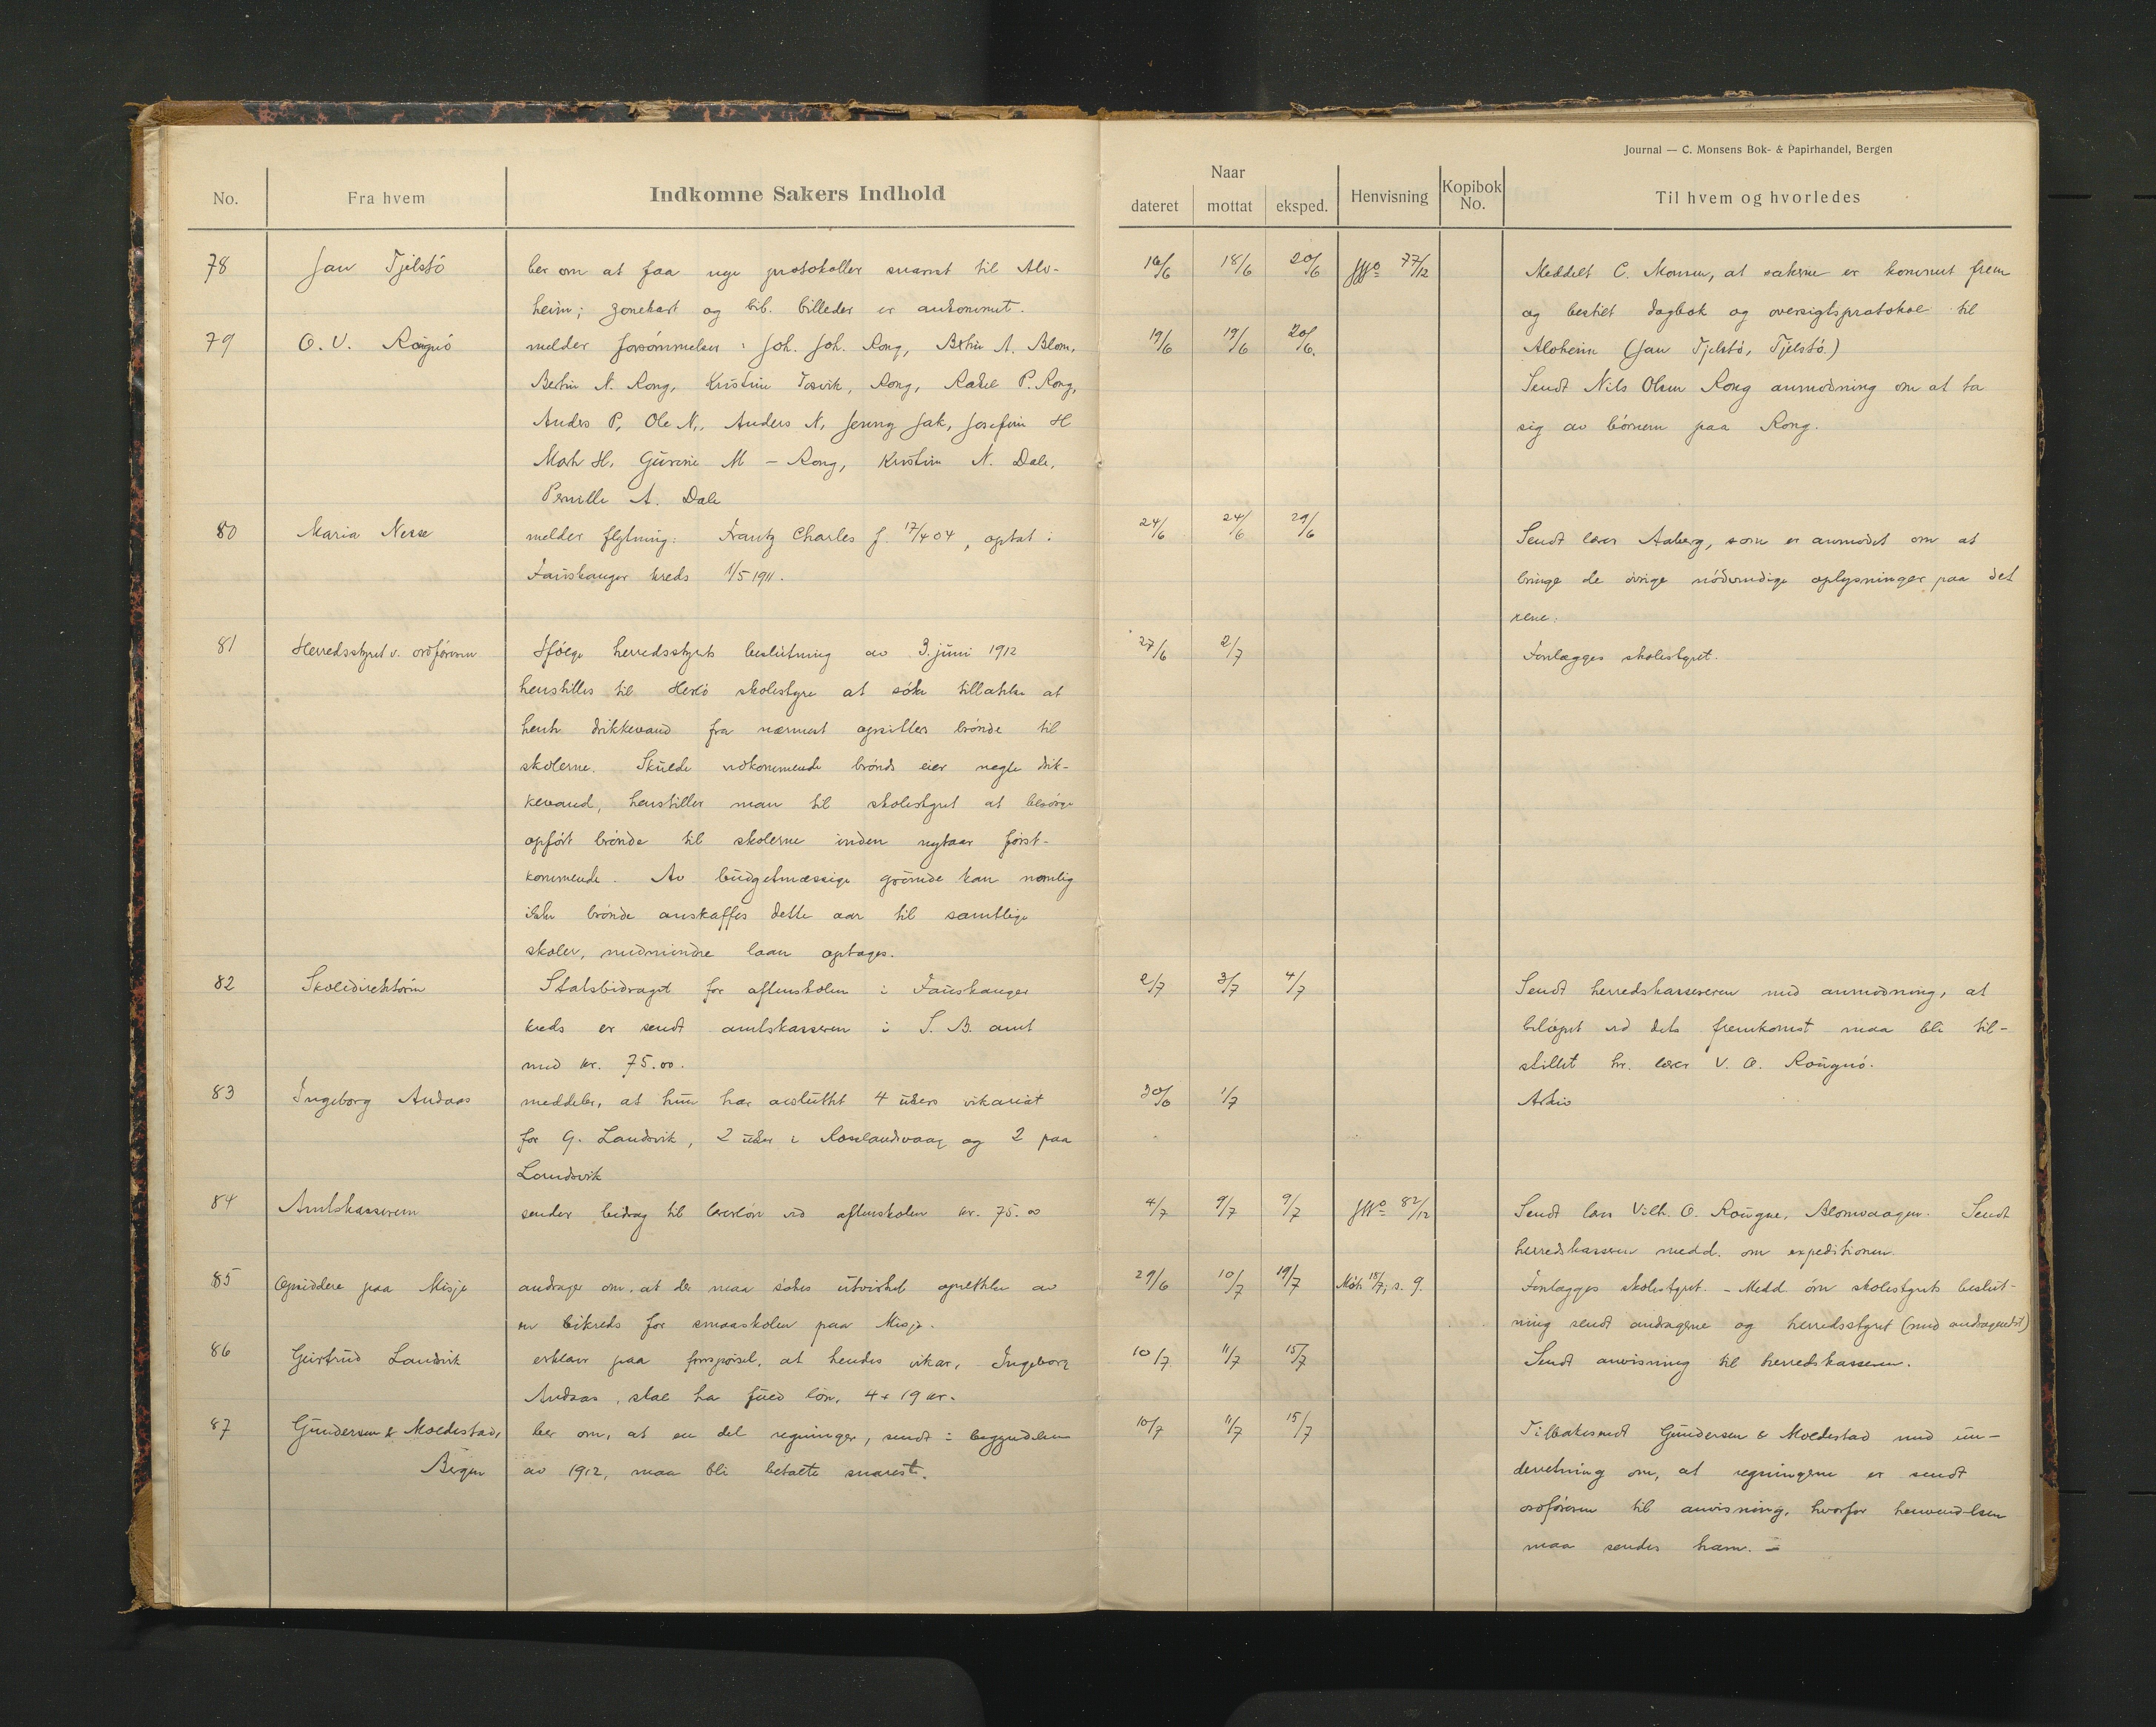 Journal — C. Monsens Bok- & Papirhandel, Bergen
No.
Fra hvem
Indkomne Sakers Indhold
Naar
dateret
mottat
eksped.
Henvisning
Kopibok No.
Til hvem og hvorledes
78
Jan Tjelstö
ber om at faa nye protokoller snarest til Alv-
heim; zonekart og bib. billeder er ankommet.
16/6
18/6
20/6
JNo 77/12
Meddelt C. Monsen, at sakerne er kommet frem
og bestilt dagbok og oversigtsprotokol til
Alvheim (Jan Tjelstö, Tjelstö.)
79
O. V. Rougnö
melder forsömmelser: Joh. Joh. Rong, Bertin A. Blom,
Bertin N. Rong, Kristine Tosvik, Rong, Rakel P. Rong,
Anders P, Ole N., Anders N, Jenny Jak, Josefine H
Mart H, Gurine M - Rong, Kristine N. Dale,
Pernille A. Dale
19/6
19/6
20/6.
Sendt Nils Olsen Rong anmodning om at ta
sig av börnene paa Rong.
80
Maria Nesse
melder flytning: Frantz Charles f. 17/4 04, optat i
Fauskanger kreds 1/5 1911.
24/6
24/6
29/6
Sendt lærer Aaberg, som er anmodet om at
bringe de övrige nödvendige oplysninger paa det
rene.
81
Herredsstyret v. ordföreren
Ifölge herredsstyrets beslutning av 3. juni 1912
henstilles til Herlö skolestyre at söke tillatelse at
hente drikkevand fra nærmest opsitters brönde til
skolerne. Skulde vedkommende brönds eier negte drik-
kevand, henstiller man til skolestyret at besörge
opfört brönde til skolerne inden nytaar först-
kommende. Av budgetmæssige grunde kan nemlig
ikke brönde anskaffes dette aar til samtlige
skoler, medmindre laan optages.
27/6
2/7
Forelægges skolestyret.
82
Skoledirektören
Statsbidraget for aftenskolen i Fauskanger
kreds er sendt amtskasseren i S. B. amt
med kr. 75.00.
2/7
3/7
4/7
Sendt herredskassereren med anmodning, at
belöpet ved dets fremkomst maa bli til-
stillet hr. lærer V. O. Rougnö.
83
Ingeborg Andaas
meddeler, at hun har avsluttet 4 ukers vikariat
for G. Landsvik, 2 uker i Roslandsvaag og 2 paa
Landsvik
30/6
1/7
Arkiv
84
Amtskassereren
sender bidrag til lærerlön ved aftenskolen kr. 75.00
4/7
9/7
9/7
JNo 82/12
Sendt lærer Vilh. O. Rougne, Blomvaagen. Sendt
herredskasseren medd. om expeditionen.
85
Opsiddere paa Misje
andrager om, at der maa sökes utvirket oprettelse av
en bikreds for smaaskolen paa Misje.
29/6
10/7
19/7
Möte 18/7, s. 9.
Forelægges skolestyret. - Medd. om skolestyrets beslut-
ning sendt andragerne og herredsstyret (med andragendet)
86
Gjertrud Landsvik
erklærer paa forespörsel, at hendes vikar, Ingeborg
Andaas, skal ha fuld lön, 4 x 19 kr.
10/7
11/7
15/7
Sendt anvisning til herredskasseren.
87
Gundersen & Moldestad,
Bergen
ber om, at en del regninger, sendt i begyndelsen
av 1912, maa bli betalte snarest.
10/7
11/7
15/7
Tilbakesendt Gundersen & Moldestad med un-
derretning om, at regningene er sendt
ordföreren til anvisning, hvorfor henvendelsen
maa sendes ham. -